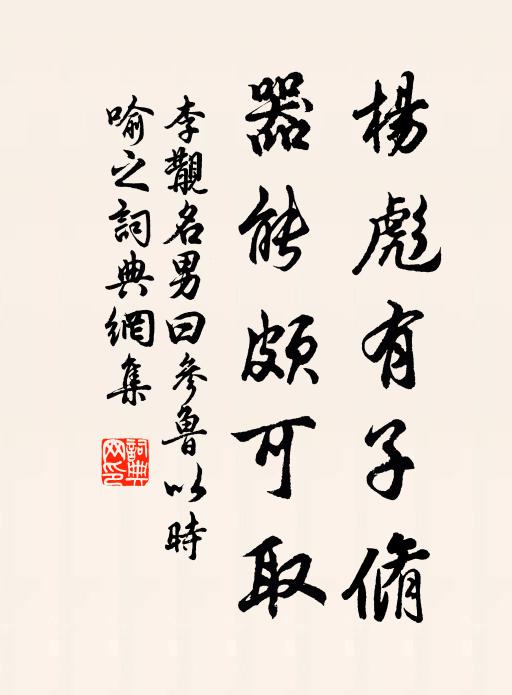 楊彪有子脩
器能頗可取
李覯名男曰參魯以時
喻之詞典網集
詞典網印